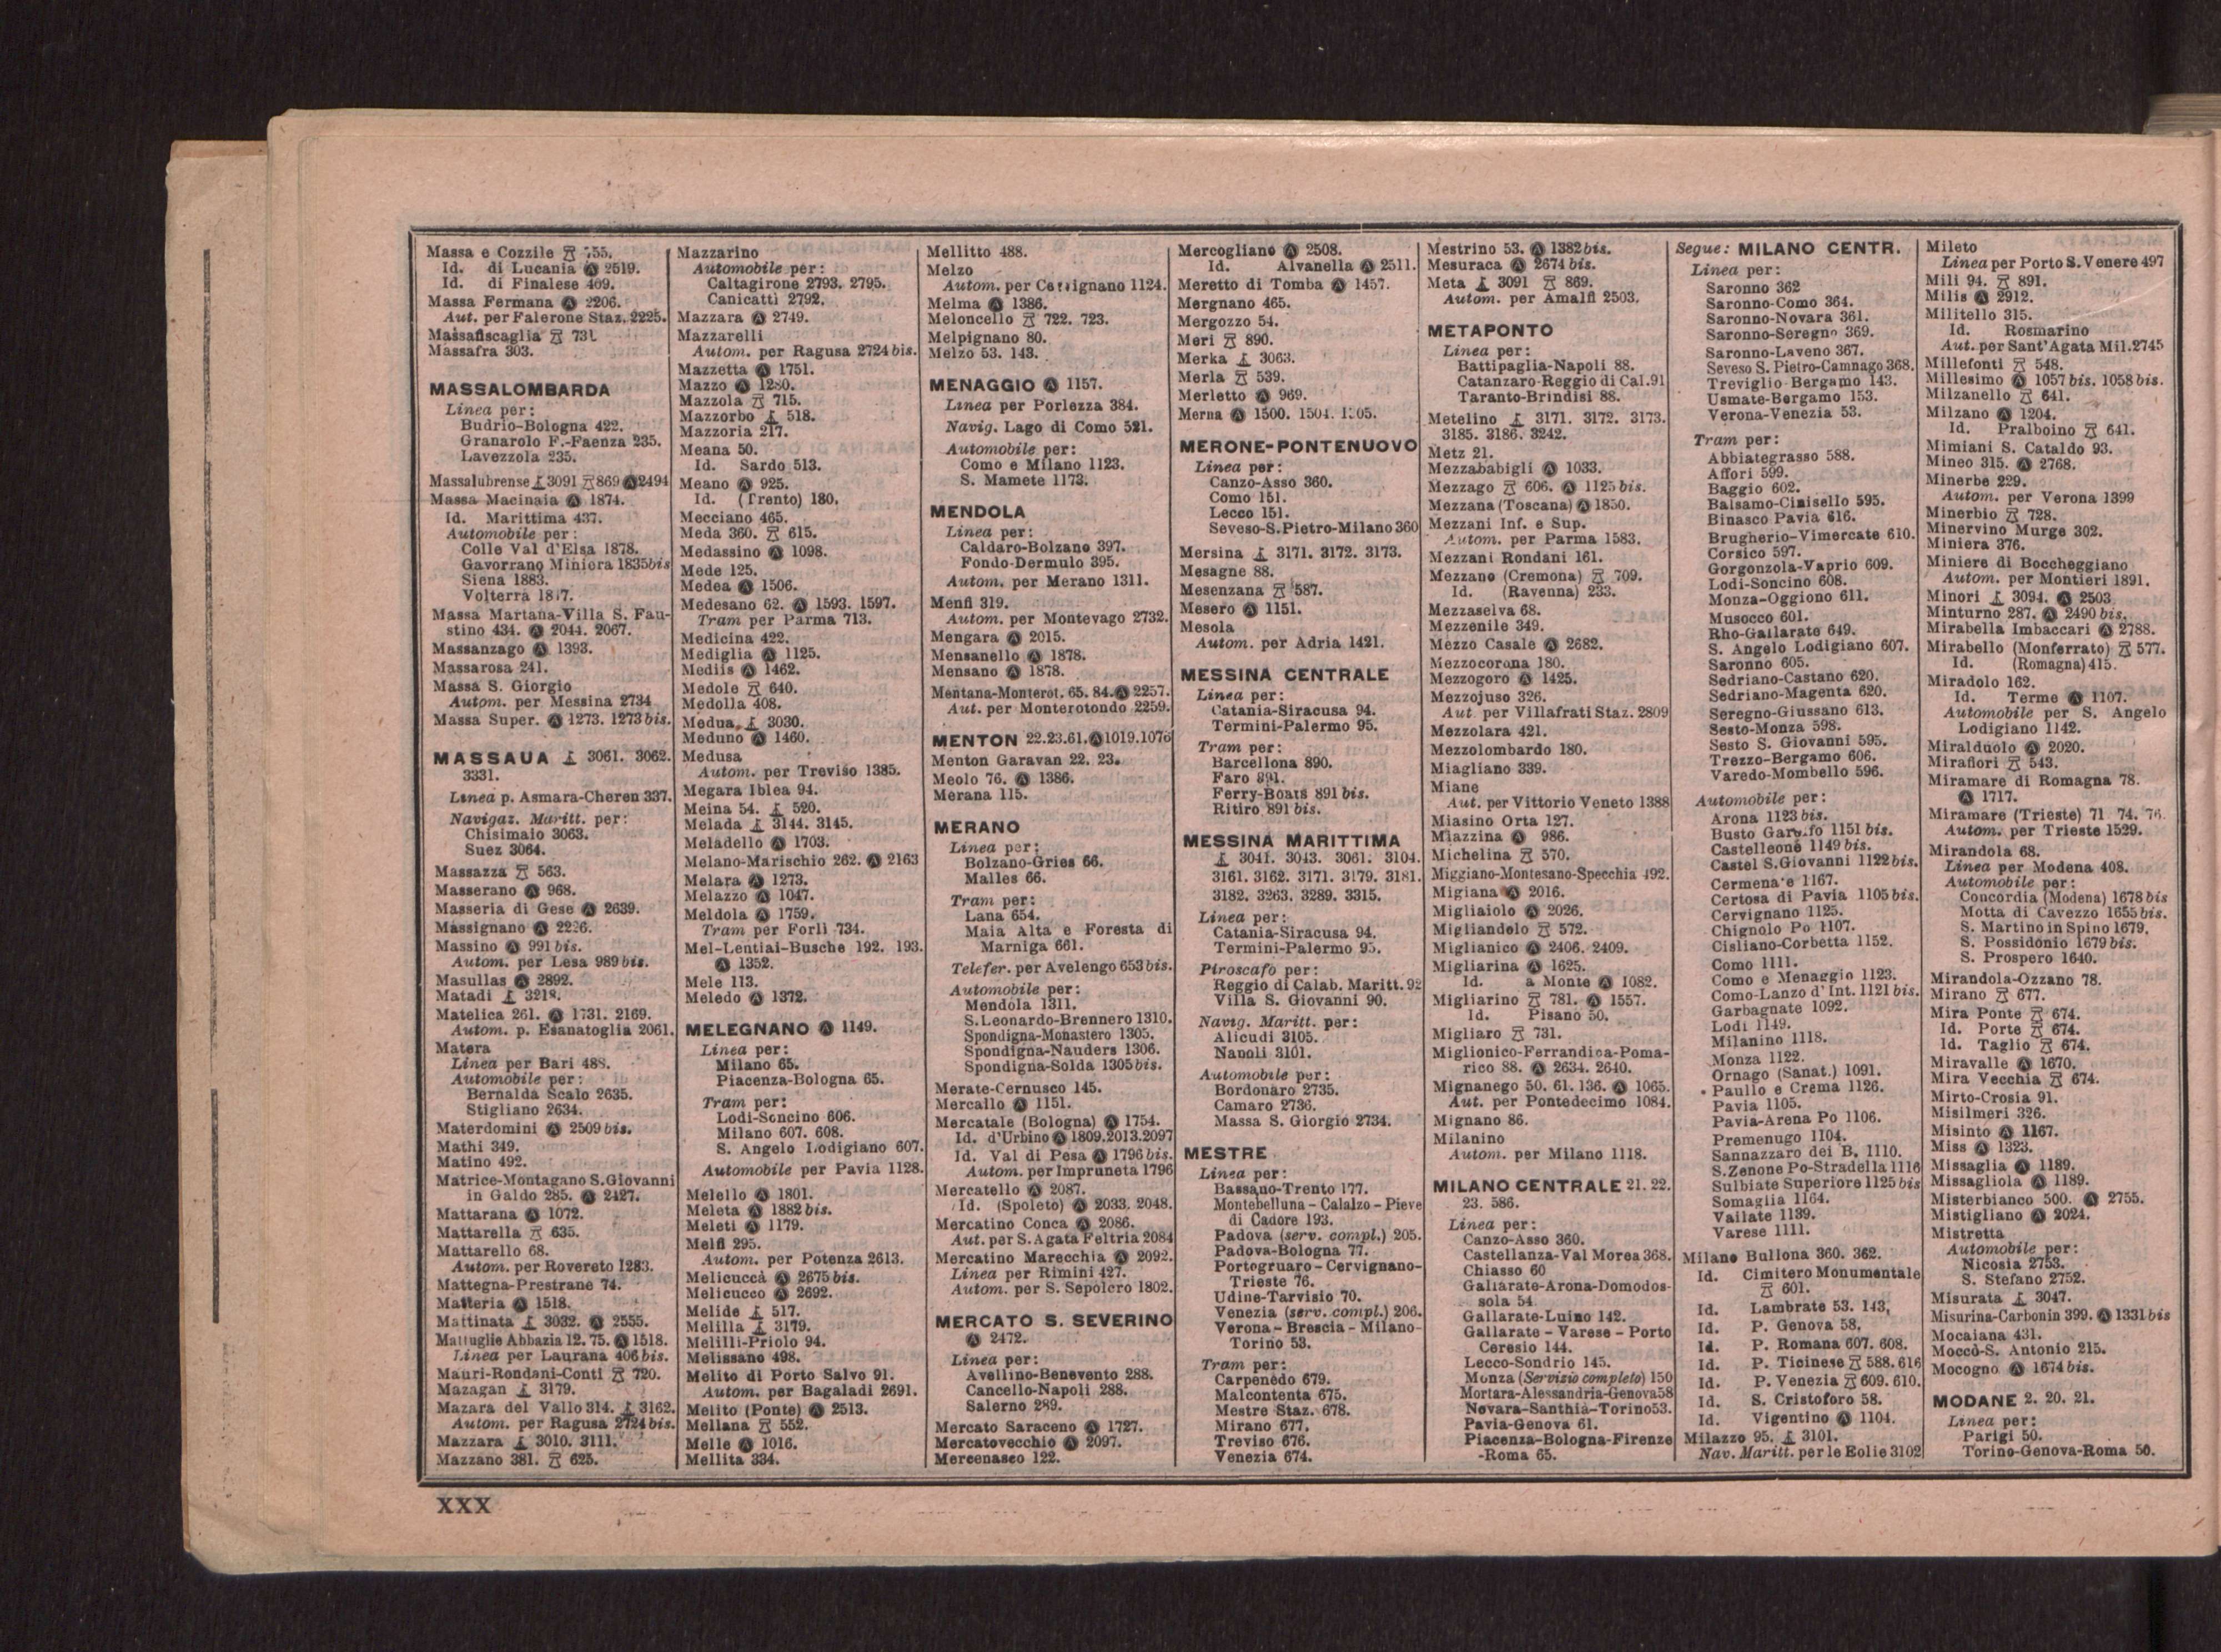 Massa e Cozzile 755.
Id. di Lucania Ⓐ 2519.
Id. di Finalese 409.
Massa Fermana Ⓐ 2206.
Aut. per Falerone Staz. 2225.
Massafiscaglia 731
Massafra 303.
MASSALOMBARDA
Linea per:
Budrio-Bologna 422.
Granarolo F.-Faenza 235.
Lavezzola 235.
Massalubrense 3091 869 Ⓐ 2494
Massa Macinaia Ⓐ 1874.
Id. Marittima 437.
Automobile per:
Colle Val d'Elsa 1878.
Gavorrano Miniera 1835 bis
Siena 1883.
Volterra
Massa Martana-Villa S. Fau-
stino 434. Ⓐ 2044. 2067.
Massanzago Ⓐ 1393.
Massarosa 241.
Massa S. Giorgio
Autom. per Messina 2734
Massa Super. Ⓐ 1273. 1273 bis.
MASSAUA 3061. 3062.
3331.
Linea p. Asmara-Cheren 337.
Navigaz. Maritt. per:
Chisimaio 3063.
Suez 3064.
Massazza 563.
Masserano Ⓐ 968.
Masseria di Gese Ⓐ 2639.
Massignano Ⓐ
Massino Ⓐ 991 bis.
Autom. per Lesa 989 bis.
Masullas Ⓐ 2892.
Matadi 3218.
Matelica 261. Ⓐ 1731. 2169.
Autom. p. Esanatoglia 2061.
Matera
Linea per Bari 488.
Automobile per:
Bernalda Scalo 2635.
Stigliano 2634.
Materdomini Ⓐ 2509 bis.
Mathi 349.
Matino 492.
Matrice-Montagano S. Giovanni
in Galdo 285. Ⓐ 2427.
Mattarana Ⓐ 1072.
Mattarella 635.
Mattarello 68.
Autom. per Rovereto 1283.
Mattegna-Prestrane 74.
Matteria Ⓐ 1518.
Mattinata 3032. Ⓐ 2555.
Mattuglie Abbazia 12. 75. Ⓐ 1518.
Linea per Laurana 406 bis.
Mauri-Rondani-Conti 720.
Mazagan 3179.
Mazara del Vallo 314. 3162.
Autom. per Ragusa 2724 bis.
Mazzara 3010. 3111.
Mazzano 381. 625.
Mazzarino
Automobile per:
Caltagirone 2793. 2795.
Canicattì 2792.
Mazzara Ⓐ 2749.
Mazzarelli
Autom. per Ragusa 2724 bis.
Mazzetta Ⓐ 1751.
Mazzo Ⓐ 1280.
Mazzola 715.
Mazzorbo 518.
Mazzoria 217.
Meana 50.
Id. Sardo 513.
Meano Ⓐ 925.
Id. (Trento) 180.
Mecciano 465.
Meda 360. 615.
Medassino Ⓐ 1098.
Mede 125.
Medea Ⓐ 1506.
Medesano 62. Ⓐ 1593. 1597.
Tram per Parma 713.
Medicina 422.
Mediglia Ⓐ 1125.
Mediis Ⓐ 1462.
Medole 640.
Medolla 408.
Medua 3030.
Meduno Ⓐ 1460.
Medusa
Autom. per Treviso 1385.
Megara Iblea 94.
Meina 54. 520.
Melada 3144. 3145.
Meladello Ⓐ 1703.
Melano-Marischio 262. Ⓐ 2163
Melara Ⓐ 1273.
Melazzo Ⓐ 1047.
Meldola Ⓐ 1759.
Tram per Forlì 734.
Mel-Lentiai-Busche 192. 193.
Ⓐ 1352.
Mele 113.
Meledo Ⓐ 1372.
MELEGNANO Ⓐ 1149.
Linea per:
Milano 65.
Piacenza-Bologna 65.
Tram per:
Lodi-Soncino 606.
Milano 607. 608.
S. Angelo Lodigiano 607.
Automobile per Pavia 1128.
Melello Ⓐ 1801.
Meleta Ⓐ 1882 bis.
Meleti Ⓐ 1179.
Melfi 295.
Autom. per Potenza 2613.
Melicuccà Ⓐ 2675 bis.
Melicucco Ⓐ 2692.
Melide 517.
Melilla 3179.
Melilli-Priolo 94.
Melissano 498.
Melito di Porto Salvo 91.
Autom. per Bagaladi 2691.
Melito (Ponte) Ⓐ 2513.
Mellana 552.
Melle Ⓐ 1016.
Mellita 334.
Mellitto 488.
Melzo
Autom. per Cernignano 1124.
Melma Ⓐ 1386.
Meloncello 722. 723.
Melpignano 80.
Melzo 53. 143.
MENAGGIO Ⓐ 1157.
Linea per Porlezza 384.
Navig. Lago di Como 521.
Automobile per:
Como e Milano 1123.
S. Mamete 1173.
MENDOLA
Linea per:
Caldaro-Bolzano 397.
Fondo-Dermulo 395.
Autom. per Merano 1311.
Menfi 319.
Autom. per Montevago 2732.
Mengara Ⓐ 2015.
Mensanello Ⓐ 1878.
Mensano Ⓐ 1878.
Mentana-Monterot. 65. 84. Ⓐ 2257.
Aut. per Monterotondo 2259.
MENTON 22.23.61. Ⓐ 1019.1076
Menton Garavan 22. 23.
Meolo 76. Ⓐ 1386.
Merana 115.
MERANO
Linea per:
Bolzano-Gries 66.
Malles 66.
Tram per:
Lana 654.
Maia Alta e Foresta di
Marniga 661.
Telefer. per Avelengo 653 bis.
Automobile per:
Mendola 1311.
S. Leonardo-Brennero 1310.
Spondigna-Monastero 1305.
Spondigna-Nauders 1306.
Spondigna-Solda 1305 bis.
Merate-Cernusco 145.
Mercallo Ⓐ 1151.
Mercatale (Bologna) Ⓐ 1754.
Id. d'Urbino Ⓐ 1809.2013.2097
Id. Val di Pesa Ⓐ 1796 bis.
Autom. per Impruneta 1796
Mercatello Ⓐ 2087.
Id. (Spoleto) Ⓐ 2033. 2048.
Mercatino Conca Ⓐ 2086.
Aut. per S. Agata Feltria 2084
Mercatino Marecchia Ⓐ 2092.
Linea per Rimini 427.
Autom. per S. Sepolcro 1802.
MERCATO S. SEVERINO
Ⓐ 2472.
Linea per:
Avellino-Benevento 288.
Cancello-Napoli 288.
Salerno 289.
Mercato Saraceno Ⓐ 1727.
Mercatovecchio Ⓐ 2097.
Mercenasco 122.
Mercogliano Ⓐ 2508.
Id. Alvanella Ⓐ 2511.
Meretto di Tomba Ⓐ 1457.
Mergnano 465.
Mergozzo 54.
Meri 890.
Merka 3063.
Merla 539.
Merletto Ⓐ 969.
Merna Ⓐ 1500. 1504. 1505.
MERONE-PONTENUOVO
Linea per:
Canzo-Asso 360.
Como 151.
Lecco 151.
Seveso-S. Pietro-Milano 360
Mersina 3171. 3172. 3173.
Mesagne 88.
Mesenzana 587.
Mesero Ⓐ 1151.
Mesola
Autom. per Adria 1421.
MESSINA CENTRALE
Linea per:
Catania-Siracusa 94.
Termini-Palermo 95.
Tram per:
Barcellona 890.
Faro 891.
Ferry-Boats 891 bis.
Ritiro 891 bis.
MESSINA MARITTIMA
3041. 3043. 3061. 3104.
3161. 3162. 3171. 3179. 3181.
3182. 3263. 3289. 3315.
Linea per:
Catania-Siracusa 94.
Termini-Palermo 95.
Piroscafo per:
Reggio di Calab. Maritt. 92
Villa S. Giovanni 90.
Navig. Maritt. per:
Alicudi 3105.
Napoli 3101.
Automobile per:
Bordonaro 2735.
Camaro 2736.
Massa S. Giorgio 2734.
MESTRE
Linea per:
Bassano-Trento 177.
Montebelluna - Calalzo - Pieve
di Cadore 193.
Padova (serv. compl.) 205.
Padova-Bologna 77.
Portogruaro - Cervignano-
Trieste 76.
Udine-Tarvisio 70.
Venezia (serv. compl.) 206.
Verona - Brescia - Milano-
Torino 53.
Tram per:
Carpenedo 679.
Malcontenta 675.
Mestre Staz. 678.
Mirano 677.
Treviso 676.
Venezia 674.
Mestrino 53. Ⓐ 1382 bis.
Mesuraca Ⓐ 2674 bis.
Meta 3091 869.
Autom. per Amalfi 2503.
METAPONTO
Linea per:
Battipaglia-Napoli 88.
Catanzaro-Reggio di Cal. 91
Taranto-Brindisi 88.
Metelino 3171. 3172. 3173.
3185. 3186. 3242.
Metz 21.
Mezzababigli Ⓐ 1033.
Mezzago 606. Ⓐ 1125 bis.
Mezzana (Toscana) Ⓐ 1850.
Mezzani Inf. e Sup.
Autom. per Parma 1583.
Mezzani Rondani 161.
Mezzano (Cremona) 709.
Id. (Ravenna) 233.
Mezzaselva 68.
Mezzenile 349.
Mezzo Casale Ⓐ 2682.
Mezzocorona 180.
Mezzogoro Ⓐ 1425.
Mezzojuso 326.
Aut. per Villafrati Staz. 2809
Mezzolara 421.
Mezzolombardo 180.
Miagliano 339.
Miane
Aut. per Vittorio Veneto 1388
Miasino Orta 127.
Miazzina Ⓐ 986.
Michelina 570.
Miggiano-Montesano-Specchia 492.
Migiana Ⓐ 2016.
Migliaiolo Ⓐ 2026.
Migliandolo 572.
Miglianico Ⓐ 2406. 2409.
Migliarina Ⓐ 1625.
Id. a Monte Ⓐ 1082.
Migliarino 781. Ⓐ 1557.
Id. Pisano 50.
Migliaro 731.
Miglionico-Ferrandina-Poma-
rico 88. Ⓐ 2634. 2640.
Mignanego 50. 61. 136. Ⓐ 1065.
Aut. per Pontedecimo 1084.
Mignano 86.
Milanino
Autom. per Milano 1118.
MILANO CENTRALE 21. 22.
23. 586.
Linea per:
Canzo-Asso 360.
Castellanza-Val Morea 368.
Chiasso 60
Gallarate-Arona-Domodos-
sola 54.
Gallarate-Luino 142.
Gallarate - Varese - Porto
Ceresio 144.
Lecco-Sondrio 145.
Monza (Servizio completo) 150
Mortara-Alessandria-Genova 58
Novara-Santhià-Torino 53.
Pavia-Genova 61.
Piacenza-Bologna-Firenze
-Roma 65.
Segue: MILANO CENTR.
Linea per:
Saronno 362
Saronno-Como 364.
Saronno-Novara 361.
Saronno-Seregno 369.
Saronno-Laveno 367.
Seveso S. Pietro-Camnago 368.
Treviglio-Bergamo 143.
Usmate-Bergamo 153.
Verona-Venezia 53.
Tram per:
Abbiategrasso 588.
Affori 599.
Baggio 602.
Balsamo-Cinisello 595.
Binasco Pavia 616.
Brugherio-Vimercate 610.
Corsico 597.
Gorgonzola-Vaprio 609.
Lodi-Soncino 608.
Monza-Oggiono 611.
Musocco 601.
Rho-Gallarate 649.
S. Angelo Lodigiano 607.
Saronno 605.
Sedriano-Castano 620.
Sedriano-Magenta 620.
Seregno-Giussano 613.
Sesto-Monza 598.
Sesto S. Giovanni 595.
Trezzo-Bergamo 606.
Varedo-Mombello 596.
Automobile per:
Arona 1123 bis.
Busto Garolfo 1151 bis.
Castelleone 1149 bis.
Castel S. Giovanni 1122 bis.
Cermenate 1167.
Certosa di Pavia 1105 bis.
Cervignano 1125.
Chignolo Po 1107.
Cisliano-Corbetta 1152.
Como 1111.
Como e Menaggio 1123.
Como-Lanzo d'Int. 1121 bis.
Garbagnate 1092.
Lodi 1149.
Milanino 1118.
Monza 1122.
Ornago (Sanat.) 1091.
Paullo e Crema 1126.
Pavia 1105.
Pavia-Arena Po 1106.
Premenugo 1104.
Sannazzaro dei B. 1110.
S. Zenone Po-Stradella 1116
Sulbiate Superiore 1125 bis
Somaglia 1164.
Vailate 1139.
Varese 1111.
Milano Bullona 360. 362.
Id. Cimitero Monumentale
601.
Id. Lambrate 53. 143.
Id. P. Genova 58.
Id. P. Romana 607. 608.
Id. P. Ticinese 588. 616
Id. P. Venezia 609. 610.
Id. S. Cristoforo 58.
Id. Vigentino Ⓐ 1104.
Milazzo 95. 3101.
Nav. Maritt. per le Eolie 3102
Mileto
Linea per Porto S. Venere 497
Mili 94. 891.
Milis Ⓐ 2912.
Militello 315.
Id. Rosmarino
Aut. per Sant'Agata Mil. 2745
Millefonti 548.
Millesimo Ⓐ 1057 bis. 1058 bis.
Milzanello 641.
Milzano Ⓐ 1204.
Id. Pralboino 641.
Mimiani S. Cataldo 93.
Mineo 315. Ⓐ 2768.
Minerbe 229.
Autom. per Verona 1399
Minerbio 728.
Minervino Murge 302.
Miniera 376.
Miniere di Boccheggiano
Autom. per Montieri 1891.
Minori 3094. Ⓐ 2503
Minturno 287. Ⓐ 2490 bis.
Mirabella Imbaccari Ⓐ 2788.
Mirabello (Monferrato) 577.
Id. (Romagna) 415.
Miradolo 162.
Id. Terme Ⓐ 1107.
Automobile per S. Angelo
Lodigiano 1142.
Miralduolo Ⓐ 2020.
Mirafiori 543.
Miramare di Romagna 78.
Ⓐ 1717.
Miramare (Trieste) 71 74. 76.
Autom. per Trieste 1529.
Mirandola 68.
Linea per Modena 408.
Automobile per:
Concordia (Modena) 1678 bis
Motta di Cavezzo 1655 bis.
S. Martino in Spino 1679.
S. Possidonio 1679 bis.
S. Prospero 1640.
Mirandola-Ozzano 78.
Mirano 677.
Mira Ponte 674.
Id. Porte 674.
Id. Taglio 674.
Miravalle Ⓐ 1670.
Mira Vecchia 674.
Mirto-Crosia 91.
Misilmeri 326.
Misinto Ⓐ 1167.
Miss Ⓐ 1323.
Missaglia Ⓐ 1189.
Missagliola Ⓐ 1189.
Misterbianco 500. Ⓐ 2755.
Mistigliano Ⓐ 2024.
Mistretta
Automobile per:
Nicosia 2753.
S. Stefano 2752.
Misurata 3047.
Misurina-Carbonin 399. Ⓐ 1331 bis
Mocaiana 431.
Moccò-S. Antonio 215.
Mocogno Ⓐ 1674 bis.
MODANE 2. 20. 21.
Linea per:
Parigi 50.
Torino-Genova-Roma 50.
XXX